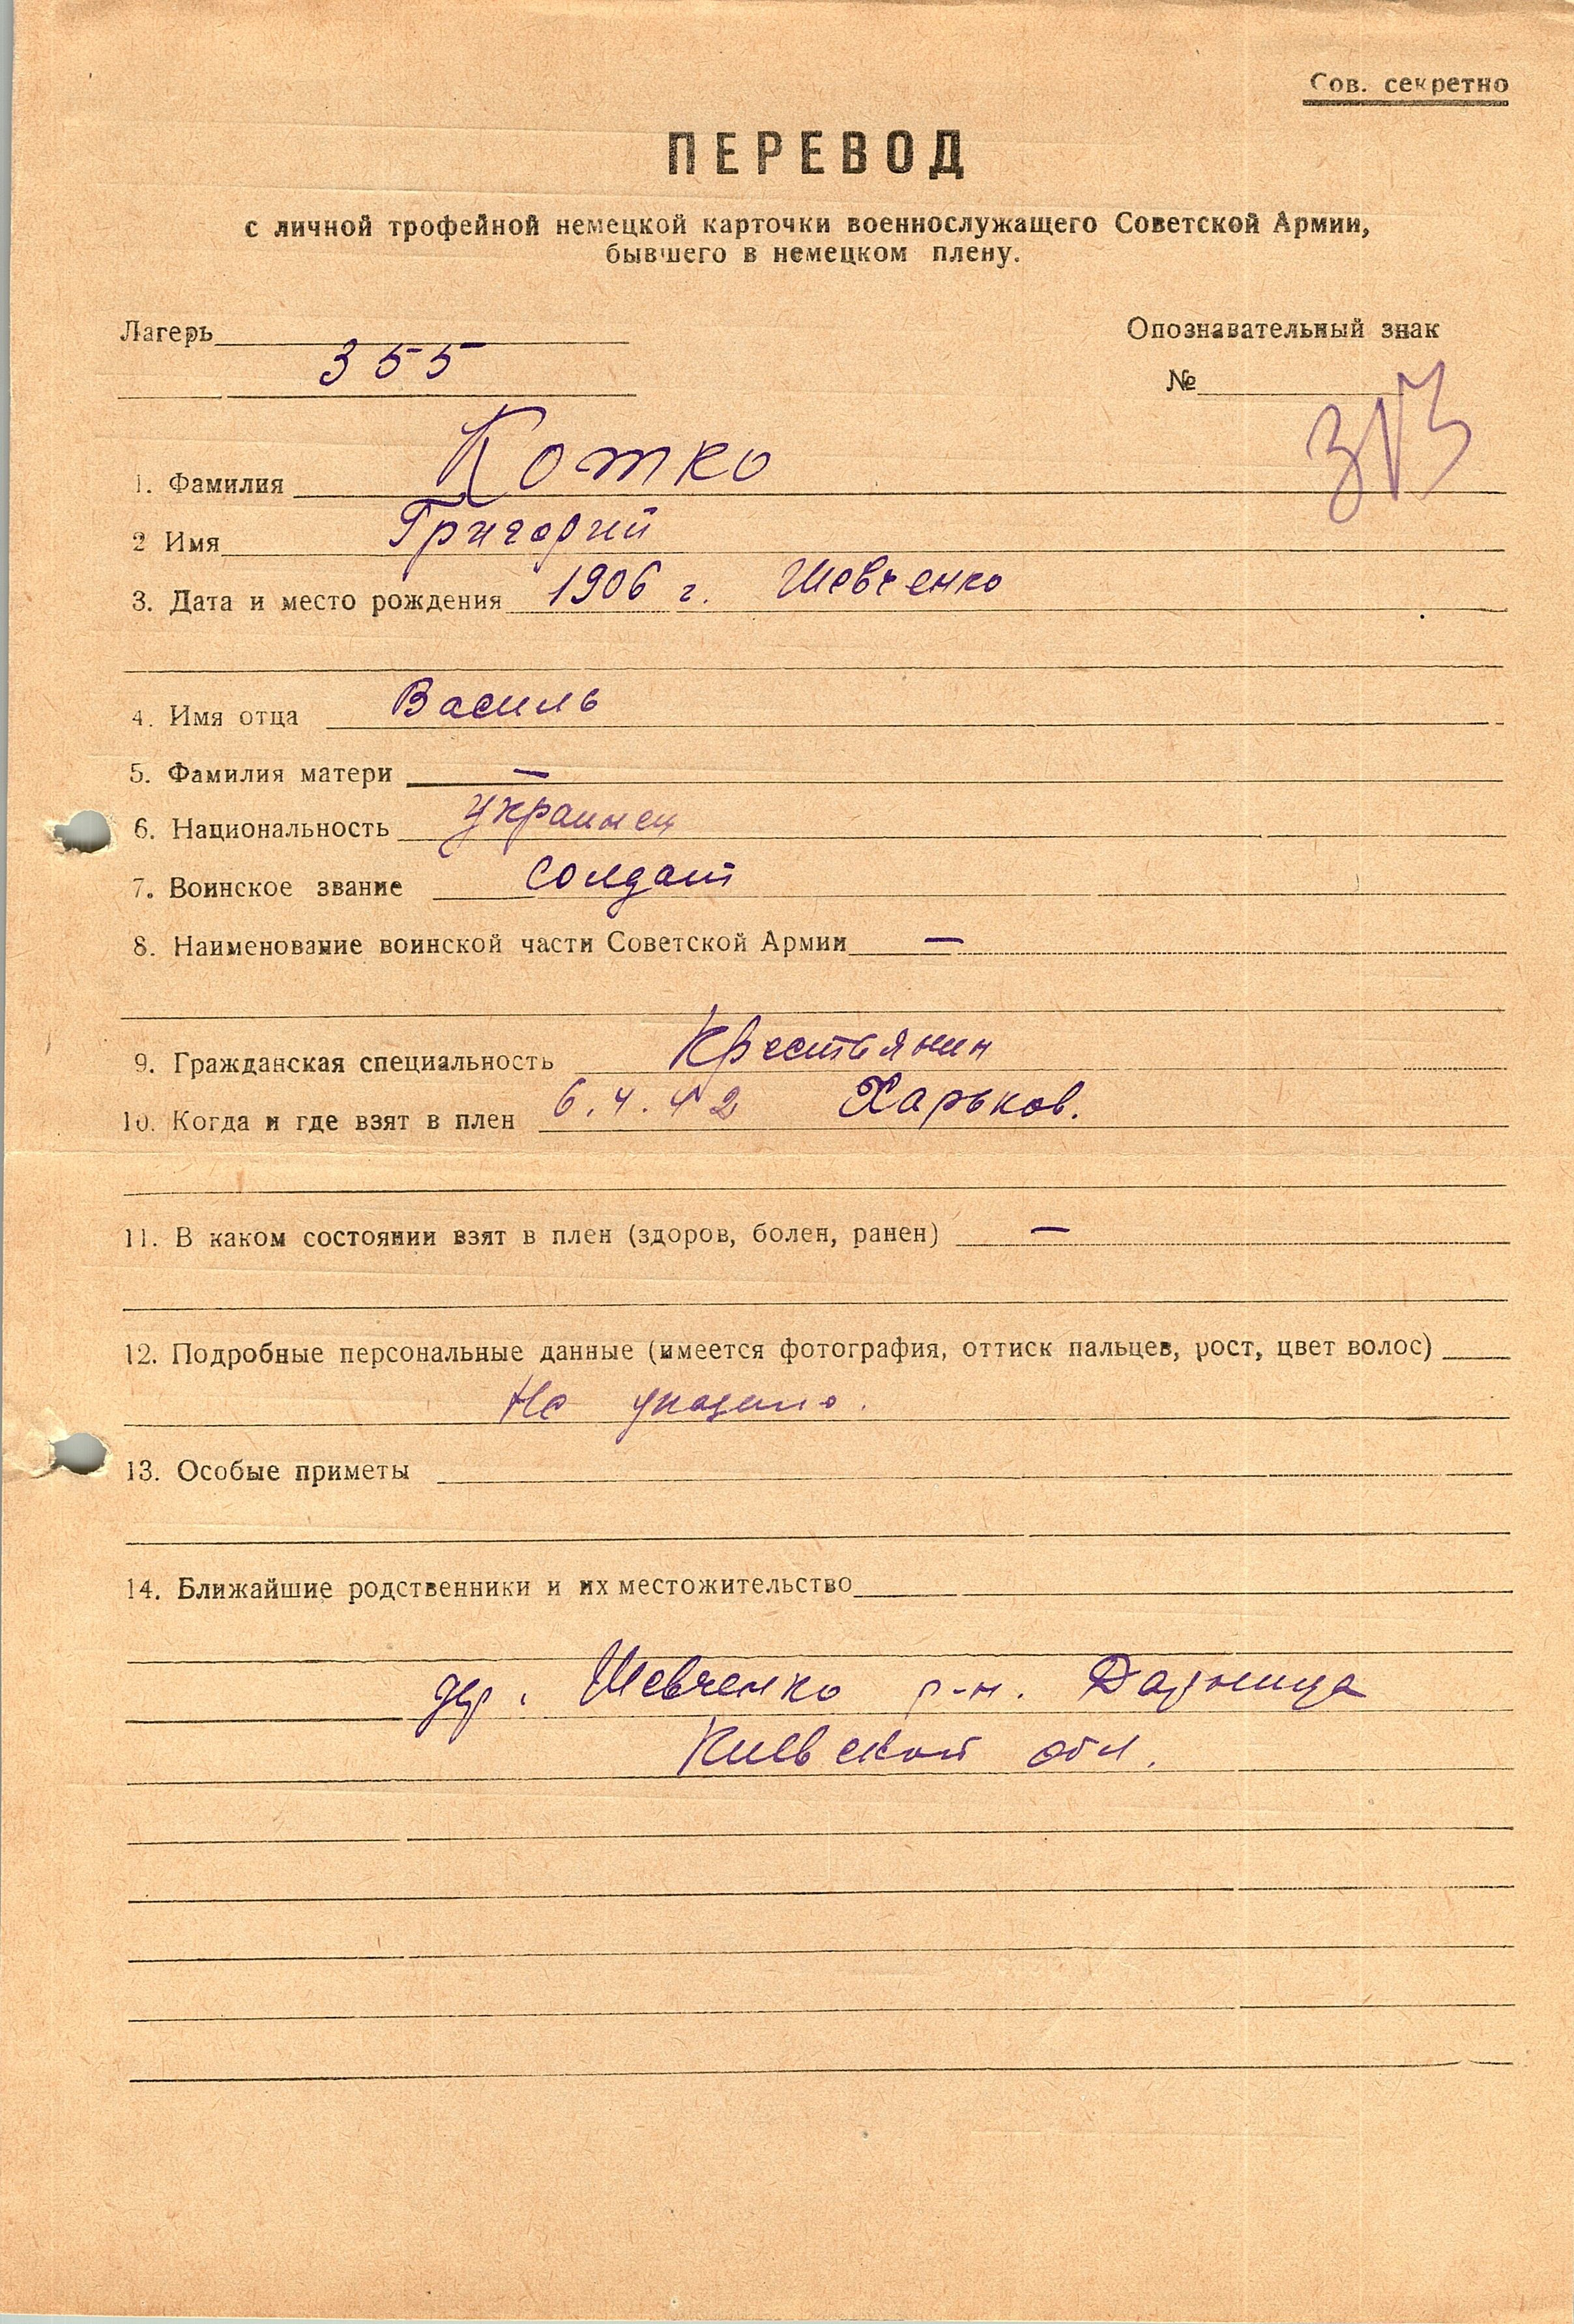 Сов. секретно
ПЕРЕВОД
с личной трофейной немецкой карточки военнослужащего Советской Армии,
бывшего в немецком плену.
Лагерь
355
Опознавательный знак
№
1. Фамилия Котко
2 Имя Григорий
3. Дата и место рождения 1906 г. Шевченко
4. Имя отца Василь
5. Фамилия матери —
6. Национальность украинец
7. Воинское звание солдат
8. Наименование воинской части Советской Армии —
9. Гражданская специальность Крестьянин
10. Когда и где взят в плен 6.4.42 Харьков.
11. В каком состоянии взят в плен (здоров, болен, ранен) —
12. Подробные персональные данные (имеется фотография, оттиск пальцев, рост, цвет волос)
Не указано.
13. Особые приметы
14. Ближайшие родственники и их местожительство
дер. Шевченко р-н. Дарница
Киевской обл.